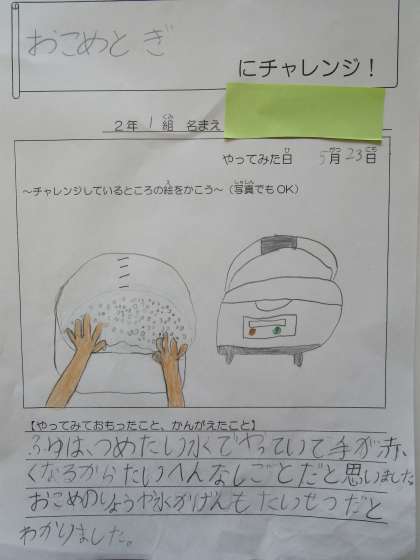 おこめとぎ
にチャレンジ！
2年 1 組 名まえ
やってみた日 5月23日
～チャレンジしているところの絵をかこう～（写真でもOK）
【やってみておもったこと、かんがえたこと】
ふゆは、つめたい水でやっていて手が赤
くなるからたいへんなしごとだと思いました。
おこめのりょうや水かげんもたいせつだと
わかりました。